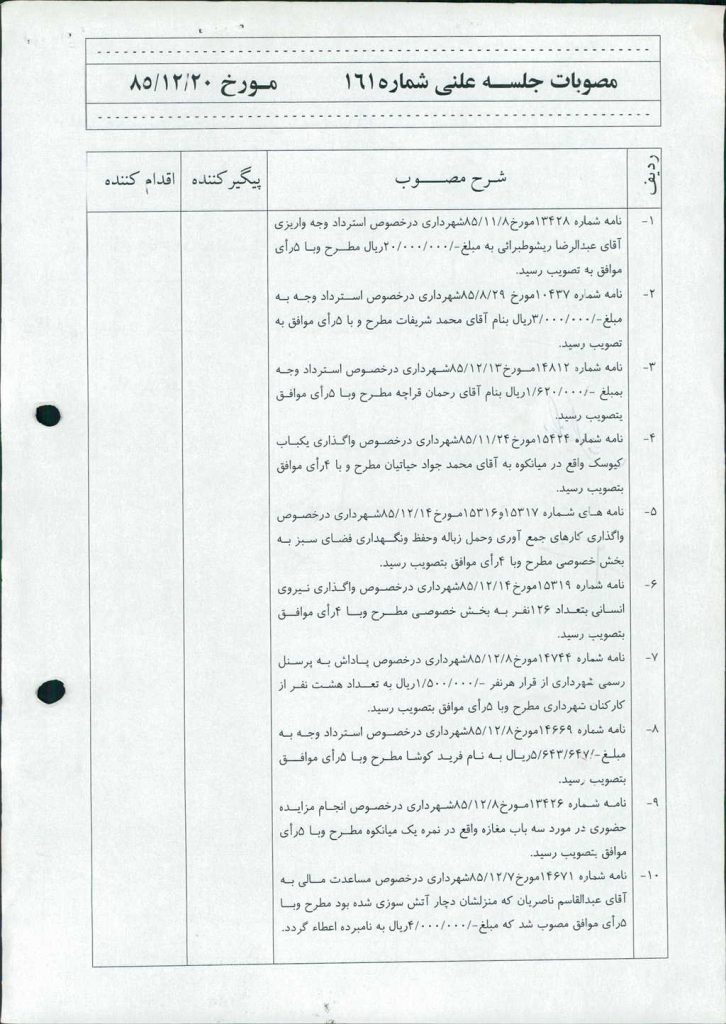 مصوبات جلســه علنی شماره۱۶۱ مـورخ ۸۵/۱۲/۲۰
ردیف شـرح مصـــوب پیگیرکننده اقدام کننده
۱- نامه شماره ۱۳۴۲۸مورخ۸۵/۱۱/۸شهرداری درخصوص استرداد وجه واریزی
آقای عبدالرضا ریشوطبرائی به مبلغ-/۲۰/۰۰۰/۰۰۰ریال مطرح وبـا ۵رأی
موافق به تصویب رسید.
۲- نامه شماره ۱۰۴۳۷مورخ ۸۵/۸/۲۹شهرداری درخصوص استرداد وجـه بـه
مبلغ-/۳/۰۰۰/۰۰۰ریال بنام آقای محمد شریفات مطرح و با ۵رأی موافق به
تصویب رسید.
۳- نامه شماره ۱۴۸۱۲مـورخ۸۵/۱۲/۱۳شـهرداری درخصـوص اسـترداد وجـه
بمبلغ -/۱/۶۲۰/۰۰۰ریال بنام آقای رحمان قراچه مطـرح وبـا ۵رأی موافـق
بتصویب رسید.
۴- نامه شماره ۱۵۴۲۴مورخ۸۵/۱۱/۲۴شهرداری درخصوص واگذاری یکبـاب
کیوسک واقع در میانکوه به آقای محمد جواد حیاتیان مطرح و با ۴رأی موافق
بتصویب رسید.
۵- نامه هـای شـماره ۱۵۳۱۷و۱۵۳۱۶مـورخ۸۵/۱۲/۱۴شـهرداری درخصـوص
واگذاری کارهای جمع آوری وحمل زباله وحفظ ونگـهداری فضـای سـبز بـه
بخش خصوصی مطرح وبا ۴رأی موافق بتصویب رسید.
۶- نامه شماره ۱۵۳۱۹مورخ۸۵/۱۲/۱۴شهرداری درخصوص واگذاری نـیروی
انسـانی بتعداد ۱۲۶نفـر به بخش خصوصی مطـرح وبـا ۴رأی موافـق
بتصویب رسید.
۷- نامه شماره ۱۴۷۴۴مورخ۸۵/۱۲/۸شهرداری درخصوص پاداش به پرسنل
رسمی شهرداری از قرار هرنفر -/۱/۵۰۰/۰۰۰ریال به تعداد هشت نفر از
کارکنان شهرداری مطرح وبا ۵رأی موافق بتصویب رسید.
۸- نامه شماره ۱۴۶۶۹مورخ۸۵/۱۲/۸شهرداری درخصوص استرداد وجـه بـه
مبلـغ-/۵/۶۴۳/۶۴۷ریـال به نام فریـد کوشا مطـرح وبـا ۵رأی موافـــق
بتصویب رسید.
۹- نامـه شـماره ۱۳۴۲۶مـورخ۸۵/۱۲/۸شهرداری درخصـوص انجـام مزایـده
حضوری در مورد سه باب مغازه واقع در نمره یک میانکوه مطرح وبـا ۵رأی
موافق بتصویب رسید.
۱۰- نامه شماره ۱۴۶۷۱مورخ۸۵/۱۲/۷شهرداری درخصوص مساعدت مـالی بـه
آقای عبدالقاسم ناصریان که منزلشان دچار آتش سوزی شده بود مطرح وبـا
۵رأی موافق مصوب شد که مبلغ-/۴/۰۰۰/۰۰۰ریال به نامبرده اعطاء گردد.